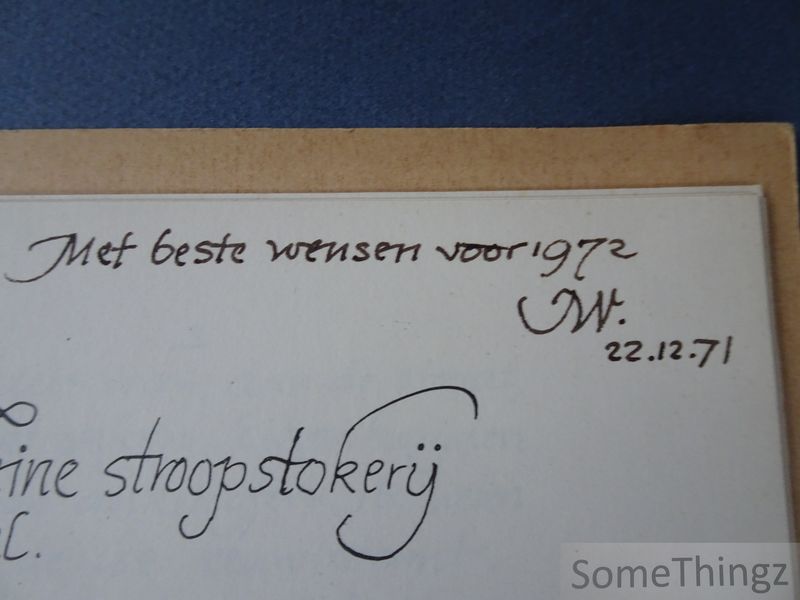 Met beste wensen voor 1972
JW.
22.12.71
rine stroopstokerij
l.
SomeThingz